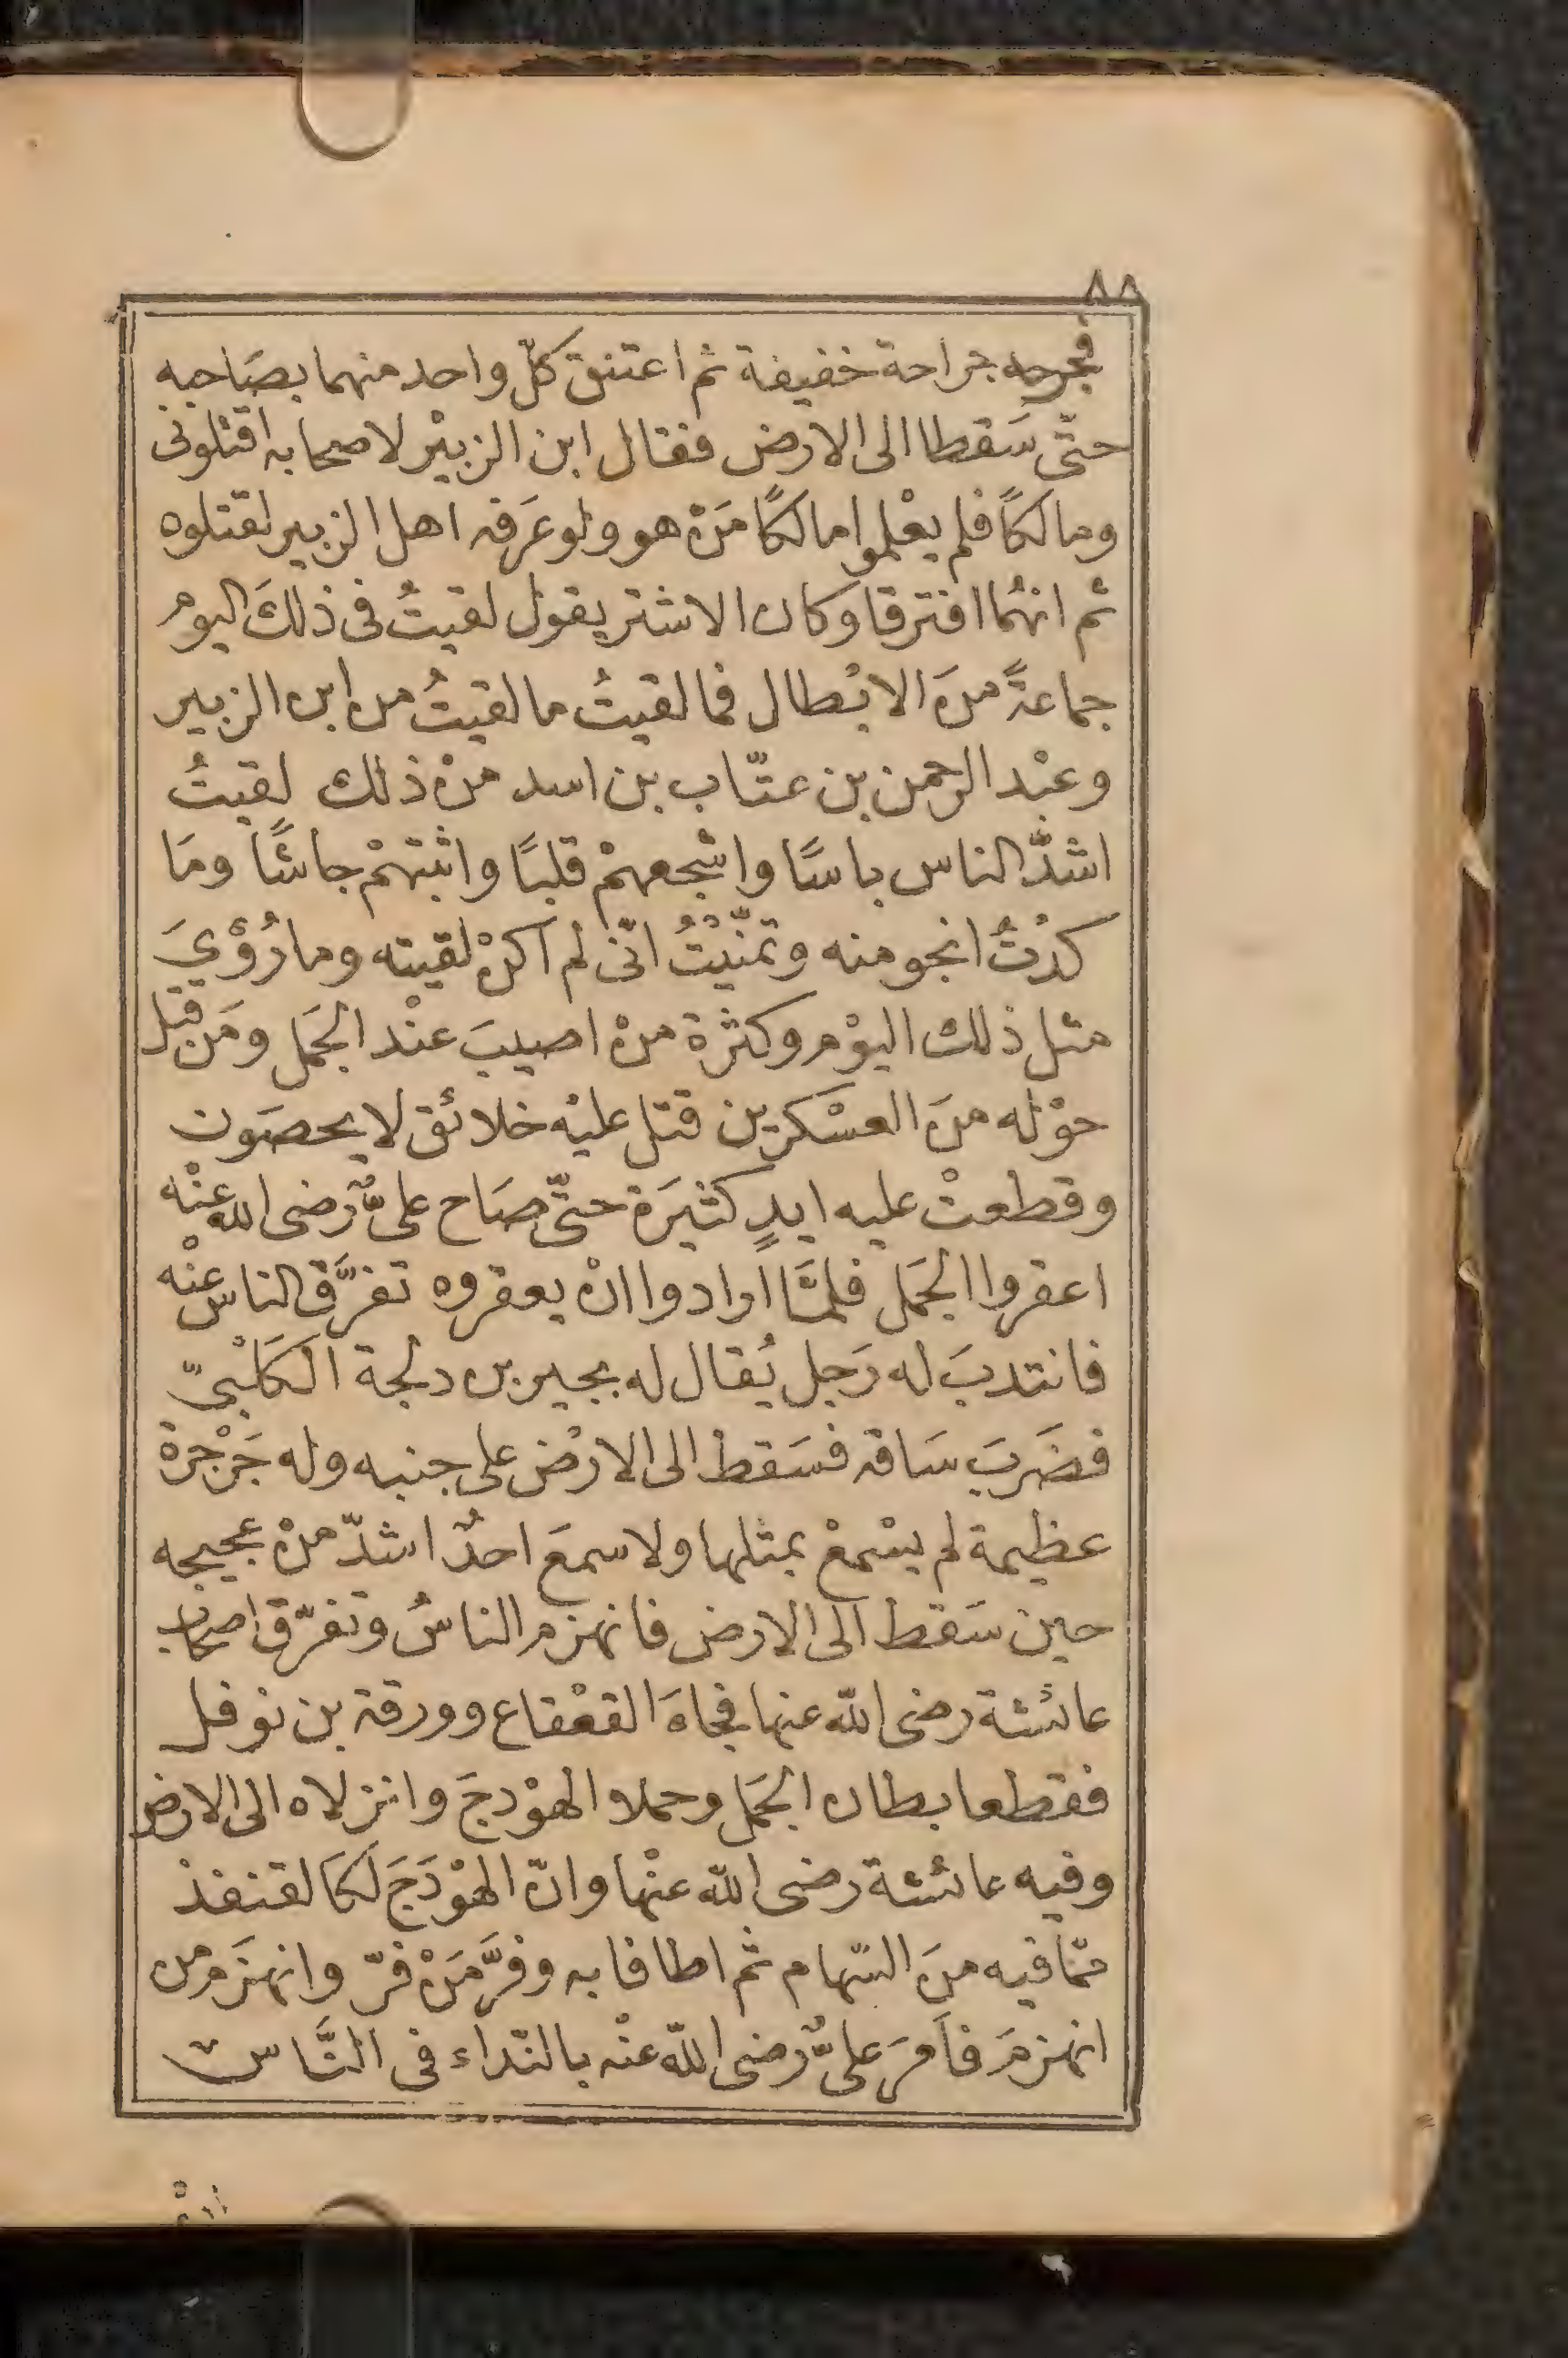 ٨٨
فجرحه جراحة خفيفة ثم اعتنق كلّ واحد منهما بصَاحبه
حتّى سَقطا الى الارض فقال ابن الزبيْر لاصحابه اقتلونى
ومالكًا فلم يعْلموا مالكًا مَنْ هو ولو عَرفه اهل الزبير لقتلوه
ثم انهُما افترقا وكان الاشتر يقول لقيتُ فى ذلكَ اليوم
جماعةً منَ الابْطال فما لقيتُ ما لقيتُ من ابن الزبير
وعبْد الرحمن بن عتّاب بن اسد منْ ذلك لقيتُ
اشدَّ الناس باسًا واشْجعهمْ قلبًا واثبتهمْ جاشًا ومَا
كدْتُ انجو منه وتمنّيْتُ انّى لم اكنْ لقيته وما رُؤْيَ
مثل ذلك اليوْم وكثرة منْ اصيبَ عنْد الجَمل ومَن قتل
حوْله منَ العسْكرين قتل عليْه خلائق لا يحصَون
وقطعتْ عليه ايدٍ كثيَرة حتّى صَاح علىٌّ رَضى الله عنْه
اعقروا الجَمل فلمَّا ارادوا انْ يعقروه تفرَّق الناس عنْه
فانتدبَ له رَجل يُقال له بجير بن دلجة الكَلْبىّ
فضَربَ سَاقه فسَقط الى الارْض على جنبه وله جَرْجرة
عظيمة لم يسْمعْ بمثلها ولا سمعَ احدٌ اشدّ منْ عجيجه
حين سَقط الى الارض فانهزم الناسُ وتفرّق اصحاب
عائشة رضى الله عنها فجاءَ القعْقاع وورقة بن نوفل
فقطعا بطان الجَمل وحملا الهوْدجَ وانزلاه الى الارض
وفيه عائشة رضى الله عنْها وانّ الهوْدَجَ لَكَالقنفذ
ممّا فيه منَ السّهام ثم اطافا به وفرَّ مَنْ فرّ وانهزَم من
انهزمَ فاَمرَ علىٌّ رَضى الله عنْه بالنّداء فى النَّاس